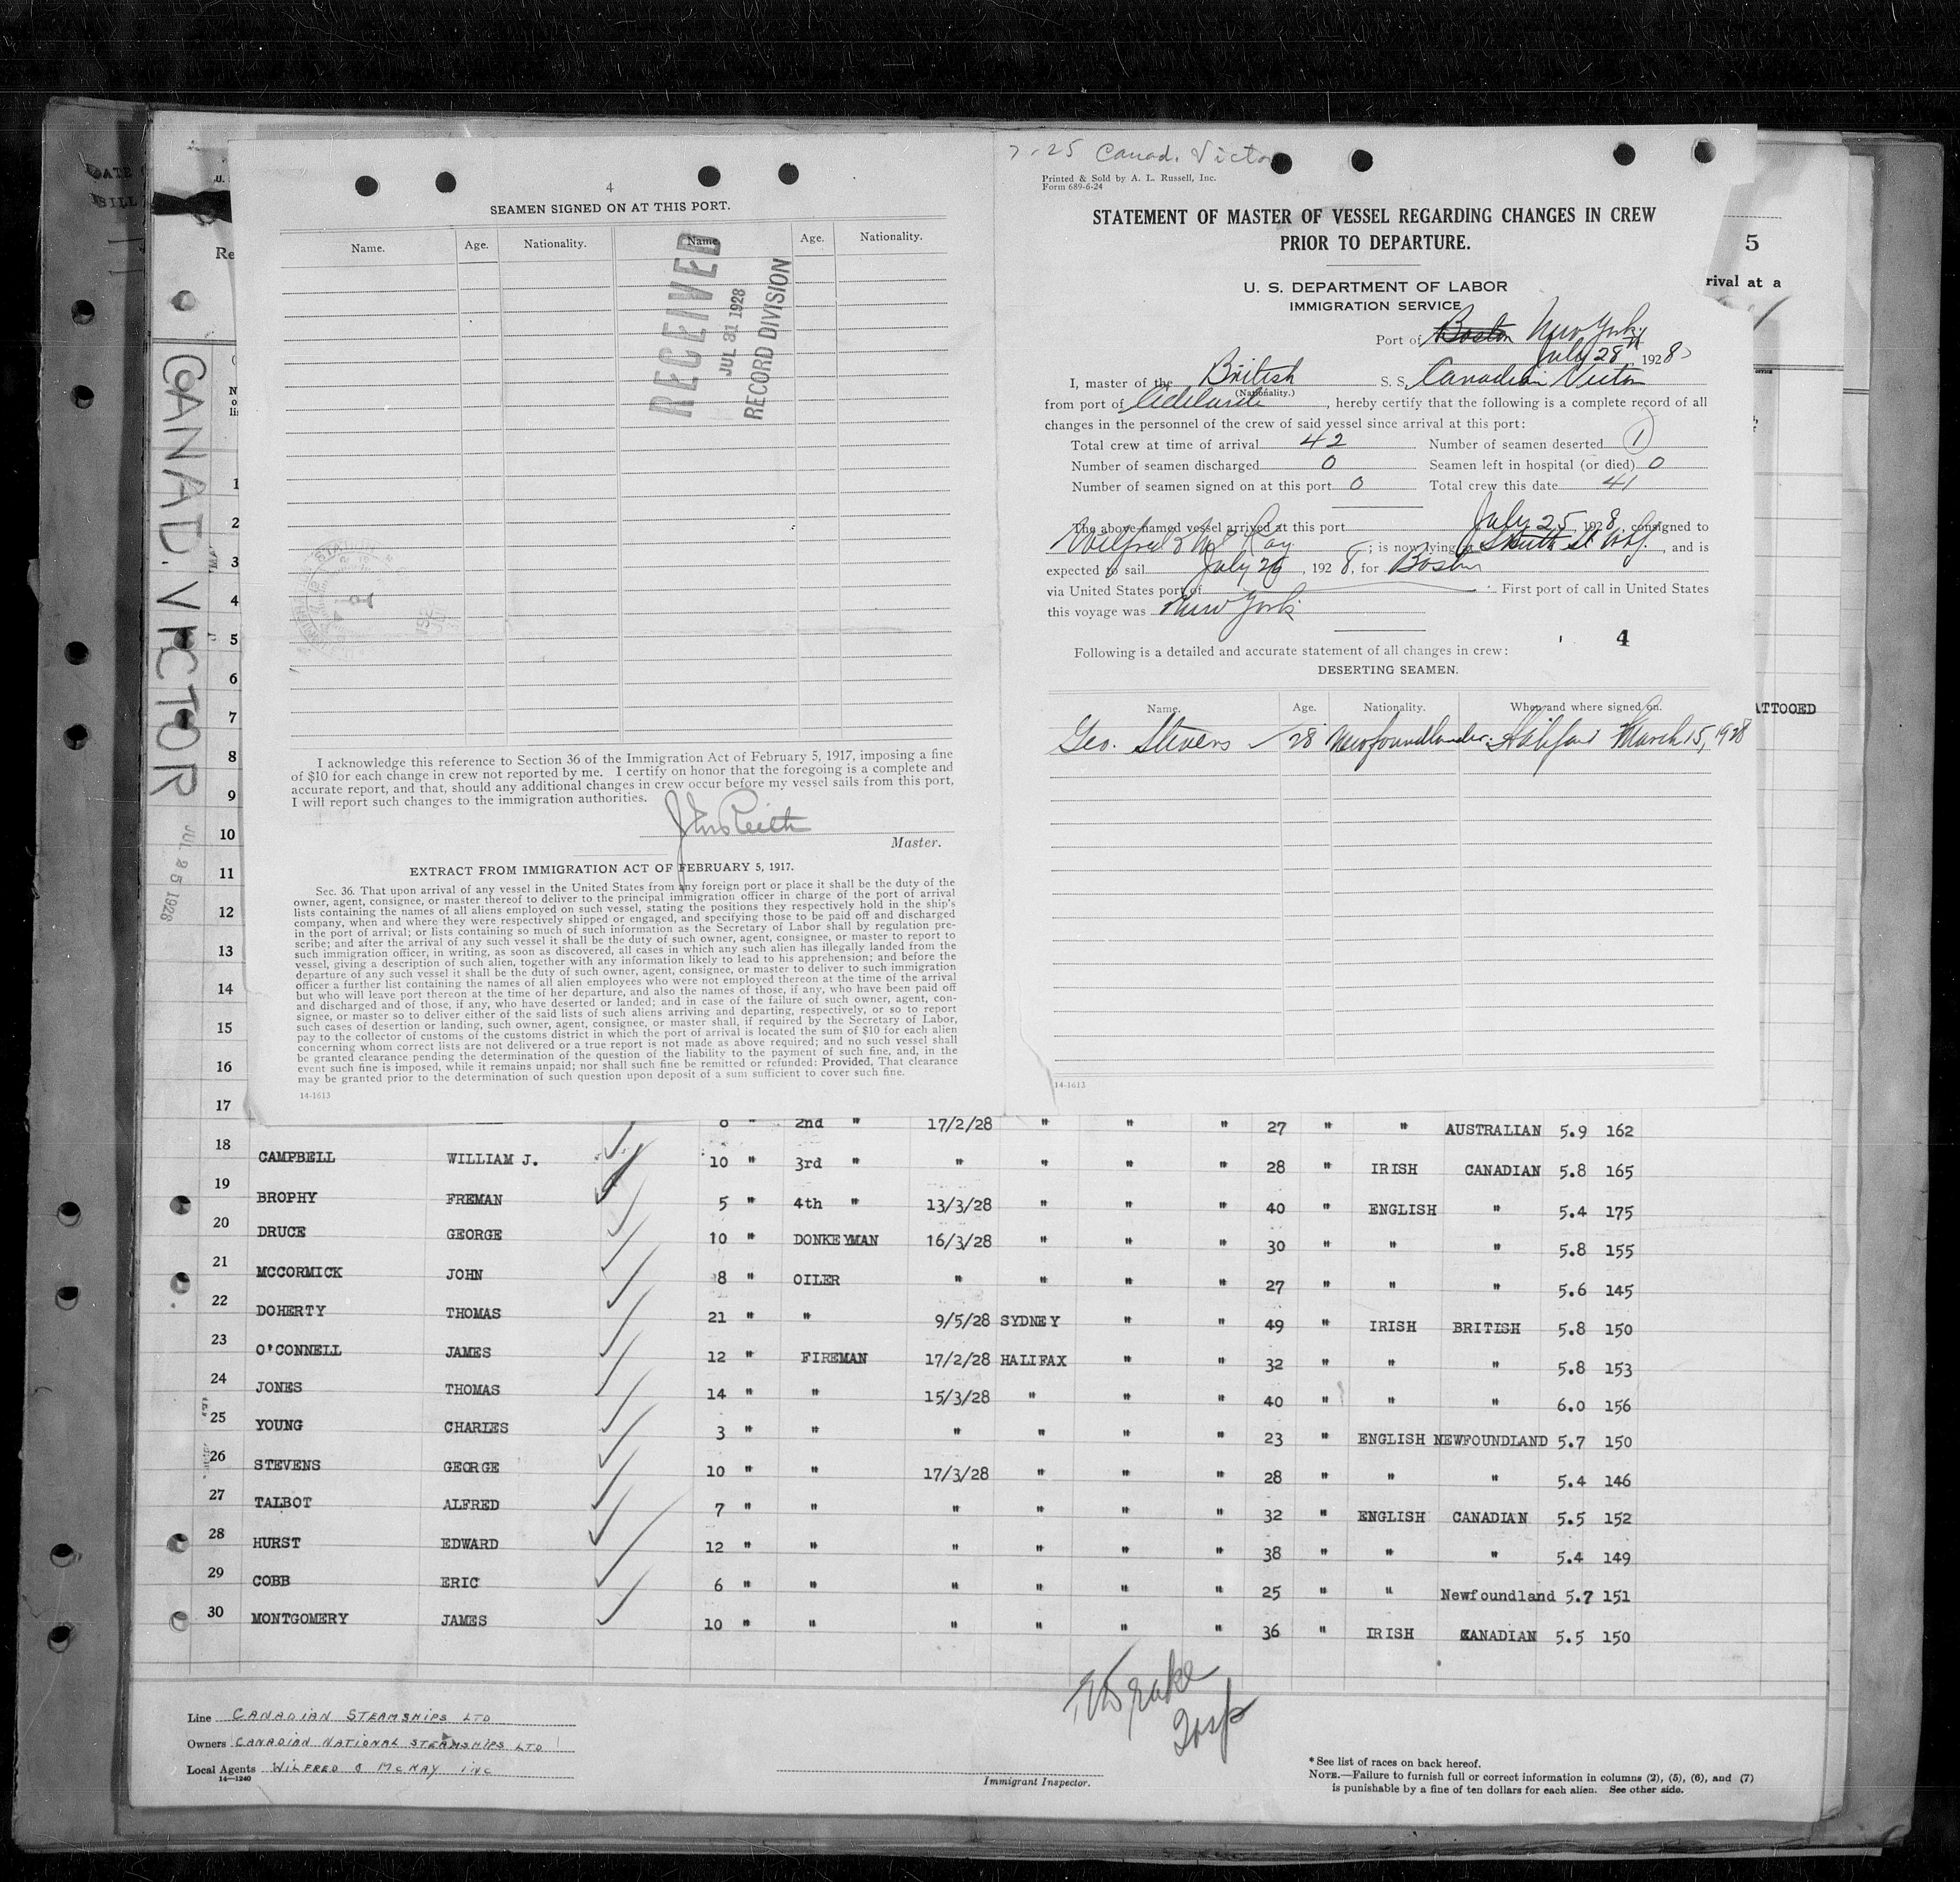 4
SEAMEN SIGNED ON AT THIS PORT.
Name. Age. Nationality. Name. Age. Nationality.
RECEIVED
JUL 31 1928
RECORD DIVISION
I acknowledge this reference to Section 36 of the Immigration Act of February 5, 1917, imposing a fine
of $10 for each change in crew not reported by me. I certify on honor that the foregoing is a complete and
accurate report, and that, should any additional changes in crew occur before my vessel sails from this port,
I will report such changes to the immigration authorities.
Master.
EXTRACT FROM IMMIGRATION ACT OF FEBRUARY 5, 1917.
Sec. 36. That upon arrival of any vessel in the United States from any foreign port or place it shall be the duty of the
owner, agent, consignee, or master thereof to deliver to the principal immigration officer in charge of the port of arrival
lists containing the names of all aliens employed on such vessel, stating the positions they respectively hold in the ship's
company, when and where they were respectively shipped or engaged, and specifying those to be paid off and discharged
in the port of arrival; or lists containing so much of such information as the Secretary of Labor shall by regulation pre-
scribe; and after the arrival of any such vessel it shall be the duty of such owner, agent, consignee, or master to report to
such immigration officer, in writing, as soon as discovered, all cases in which any such alien has illegally landed from the
vessel, giving a description of such alien, together with any information likely to lead to his apprehension; and before the
departure of any such vessel it shall be the duty of such owner, agent, consignee, or master to deliver to such immigration
officer a further list containing the names of all alien employees who were not employed thereon at the time of the arrival
but who will leave port thereon at the time of her departure, and also the names of those, if any, who have been paid off
and discharged and of those, if any, who have deserted or landed; and in case of the failure of such owner, agent, con-
signee, or master so to deliver either of the said lists of such aliens arriving and departing, respectively, or so to report
such cases of desertion or landing, such owner, agent, consignee, or master shall, if required by the Secretary of Labor,
pay to the collector of customs of the customs district in which the port of arrival is located the sum of $10 for each alien
concerning whom correct lists are not delivered or a true report is not made as above required; and no such vessel shall
be granted clearance pending the determination of the question of the liability to the payment of such fine, and, in the
event such fine is imposed, while it remains unpaid; nor shall such fine be remitted or refunded: Provided, That clearance
may be granted prior to the determination of such question upon deposit of a sum sufficient to cover such fine.
14-1613
7-25 Canad. Victor
Printed & Sold by A. L. Russell, Inc.
Form 689-6-24
STATEMENT OF MASTER OF VESSEL REGARDING CHANGES IN CREW
PRIOR TO DEPARTURE.
U. S. DEPARTMENT OF LABOR
IMMIGRATION SERVICE
Port of Boston New York
July 28, 1928
I, master of the British S. S. Canadian Victor
(Nationality.)
from port of Adelaide, hereby certify that the following is a complete record of all
changes in the personnel of the crew of said vessel since arrival at this port:
Total crew at time of arrival 42 Number of seamen deserted 1
Number of seamen discharged 0 Seamen left in hospital (or died) 0
Number of seamen signed on at this port 0 Total crew this date 41
The above-named vessel arrived at this port July 25, 1928, consigned to
Wilfred & McKay; is now lying at Smith St Whf., and is
expected to sail July 28, 1928, for Boston
via United States port of First port of call in United States
this voyage was New York
4
Following is a detailed and accurate statement of all changes in crew:
DESERTING SEAMEN.
Name. Age. Nationality. When and where signed on.
Geo. Stevens 28 Newfoundlander. Halifax March 15, 1928
14-1613
5
rival at a
ATTOOED
CANAD. VICTOR
JUL 25 1928
Re
1
2
3
4
5
6
7
8
9
10
11
12
13
14
15
16
17 8 " 2nd " 17/2/28 " " " 27 " " AUSTRALIAN 5.9 162
18 CAMPBELL WILLIAM J. 10 " 3rd " " " " " 28 " IRISH CANADIAN 5.8 165
19 BROPHY FREMAN 5 " 4th " 13/3/28 " " " 40 " ENGLISH " 5.4 175
20 DRUCE GEORGE 10 " DONKEYMAN 16/3/28 " " " 30 " " " 5.8 155
21 MCCORMICK JOHN 8 " OILER " " " " 27 " " " 5.6 145
22 DOHERTY THOMAS 21 " " 9/5/28 SYDNEY " " 49 " IRISH BRITISH 5.8 150
23 O'CONNELL JAMES 12 " FIREMAN 17/2/28 HALIFAX " " 32 " " " 5.8 153
24 JONES THOMAS 14 " " 15/3/28 " " " 40 " " " 6.0 156
25 YOUNG CHARLES 3 " " " " " " 23 " ENGLISH NEWFOUNDLAND 5.7 150
26 STEVENS GEORGE 10 " " 17/3/28 " " " 28 " " " 5.4 146
27 TALBOT ALFRED 7 " " " " " " 32 " ENGLISH CANADIAN 5.5 152
28 HURST EDWARD 12 " " " " " " 38 " " " 5.4 149
29 COBB ERIC 6 " " " " " " 25 " " Newfoundland 5.7 151
30 MONTGOMERY JAMES 10 " " " " " " 36 " IRISH CANADIAN 5.5 150
Line CANADIAN STEAMSHIPS LTD
Owners CANADIAN NATIONAL STEAMSHIPS LTD
Local Agents WILFRED & McKAY INC
14—1240
Immigrant Inspector.
* See list of races on back hereof.
NOTE.—Failure to furnish full or correct information in columns (2), (5), (6), and (7)
is punishable by a fine of ten dollars for each alien. See other side.